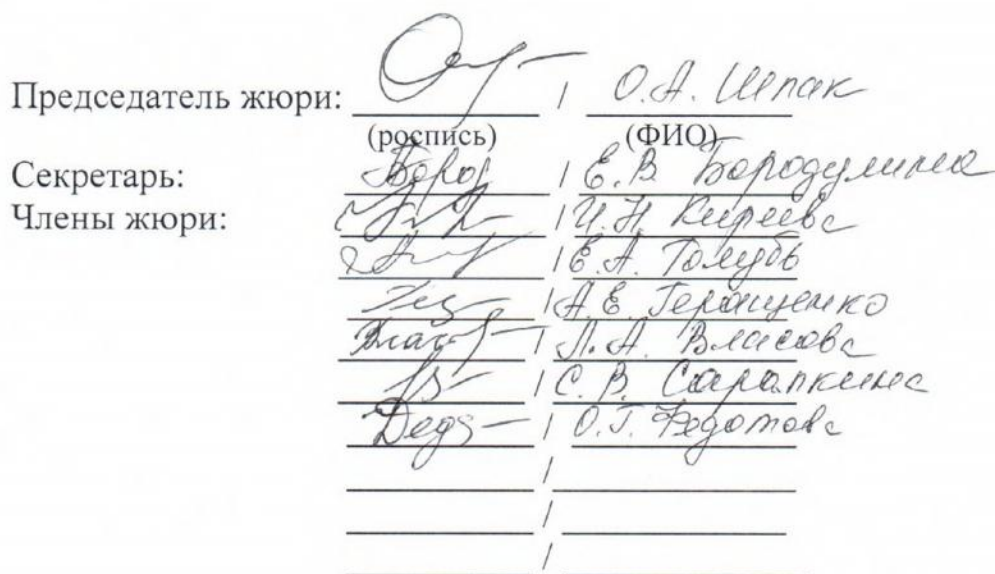 Председатель жюри: / О.А. Шпак
(роспись) (ФИО)
Секретарь: / Е.В. Бородулина
Члены жюри: / И.Н. Киреева
/ Е.А. Голубь
/ А.Е. Геращенко
/ Л.А. Власова
/ С.В. Сарапкина
/ О.Г. Федотова
/
/
/